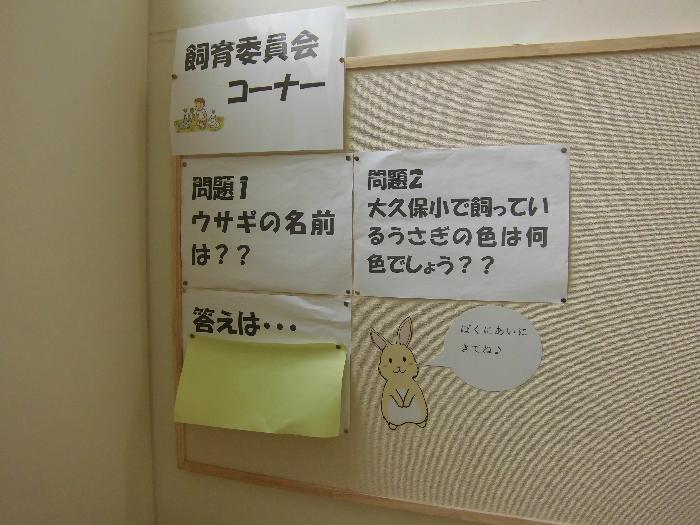 飼育委員会
コーナー
問題1
ウサギの名前
は??
問題2
大久保小で飼ってい
るうさぎの色は何
色でしょう??
答えは・・・
ぼくにあいに
きてね♪